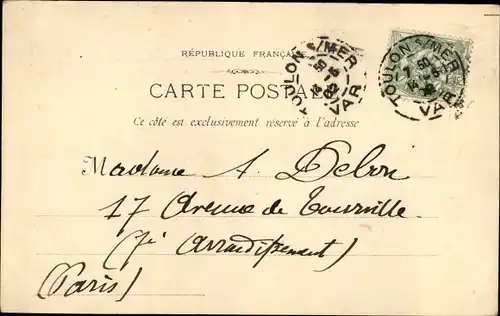 RÉPUBLIQUE FRANÇAISE
TOULON S/MER
VAR
TOULON S/MER
VAR
CARTE POSTALE
Ce côté est exclusivement réservé à l'adresse
Madame A. Debon
17 Avenue de Tourville
(7è Arrondissement)
(Paris)